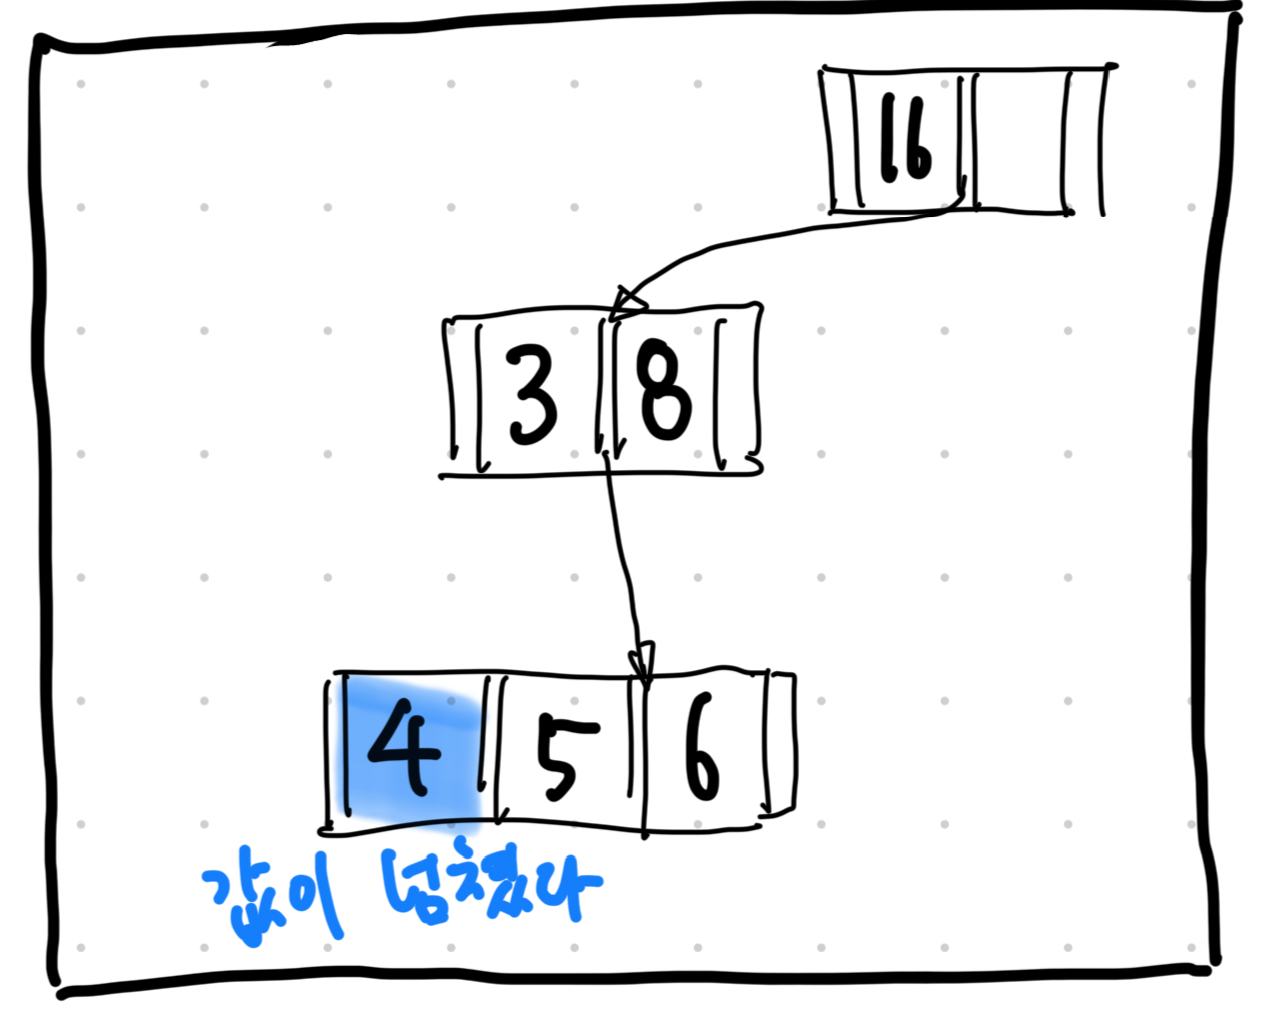 16
3 8
4 5 6
값이 넘쳤다